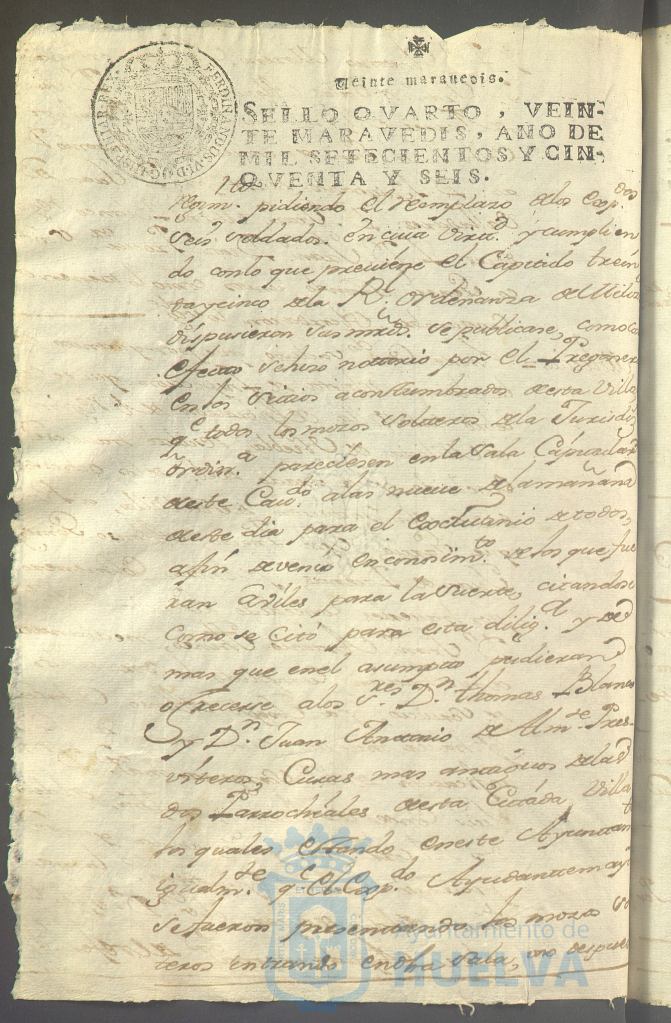 FERDINANDUS VI D G HISPANIAR REX
Veinte maravedis.
SELLO QVARTO, VEIN-
TE MARAVEDIS, AÑO DE
MIL SETECIENTOS Y CIN-
QVENTA Y SEIS.
pidiendo el remplazo de los
seis soldados. en cuia virtd. y cumplien
do con lo que previene el Capitulo trein
ta y cinco de la Rl. ordenanza de Milizs
dispusieron sus mrds. se publicase, como
efecto se hizo notorio por el Pregonero
en los sitios acostumbrados de esta Villa
qe todos los mozos solteros de la Jurisdiz
ordina. pareciesen en la sala Capitular
de este Cavdo. a las nueve de la mañana
de este dia para el de todos,
a fin de venir en conosimto. de los que fue
ran aviles para la suerte, citandose
como se citó para esta diliga. y
mas que en el asumpto pudieran
ofrecerse a los sres. Dn. Thomas Blanco
y Dn. Juan Antonio de Pres
viteros, Curas mas antiguos de las
dos Parrochiales de esta Citada Villa
los quales estando en este Ayuntam
igualmte. qe el Ayudante mayr
se fueron presentando los mozos sol
teros entrando en dha sala, uno despues
Ayuntamiento de
HUELVA